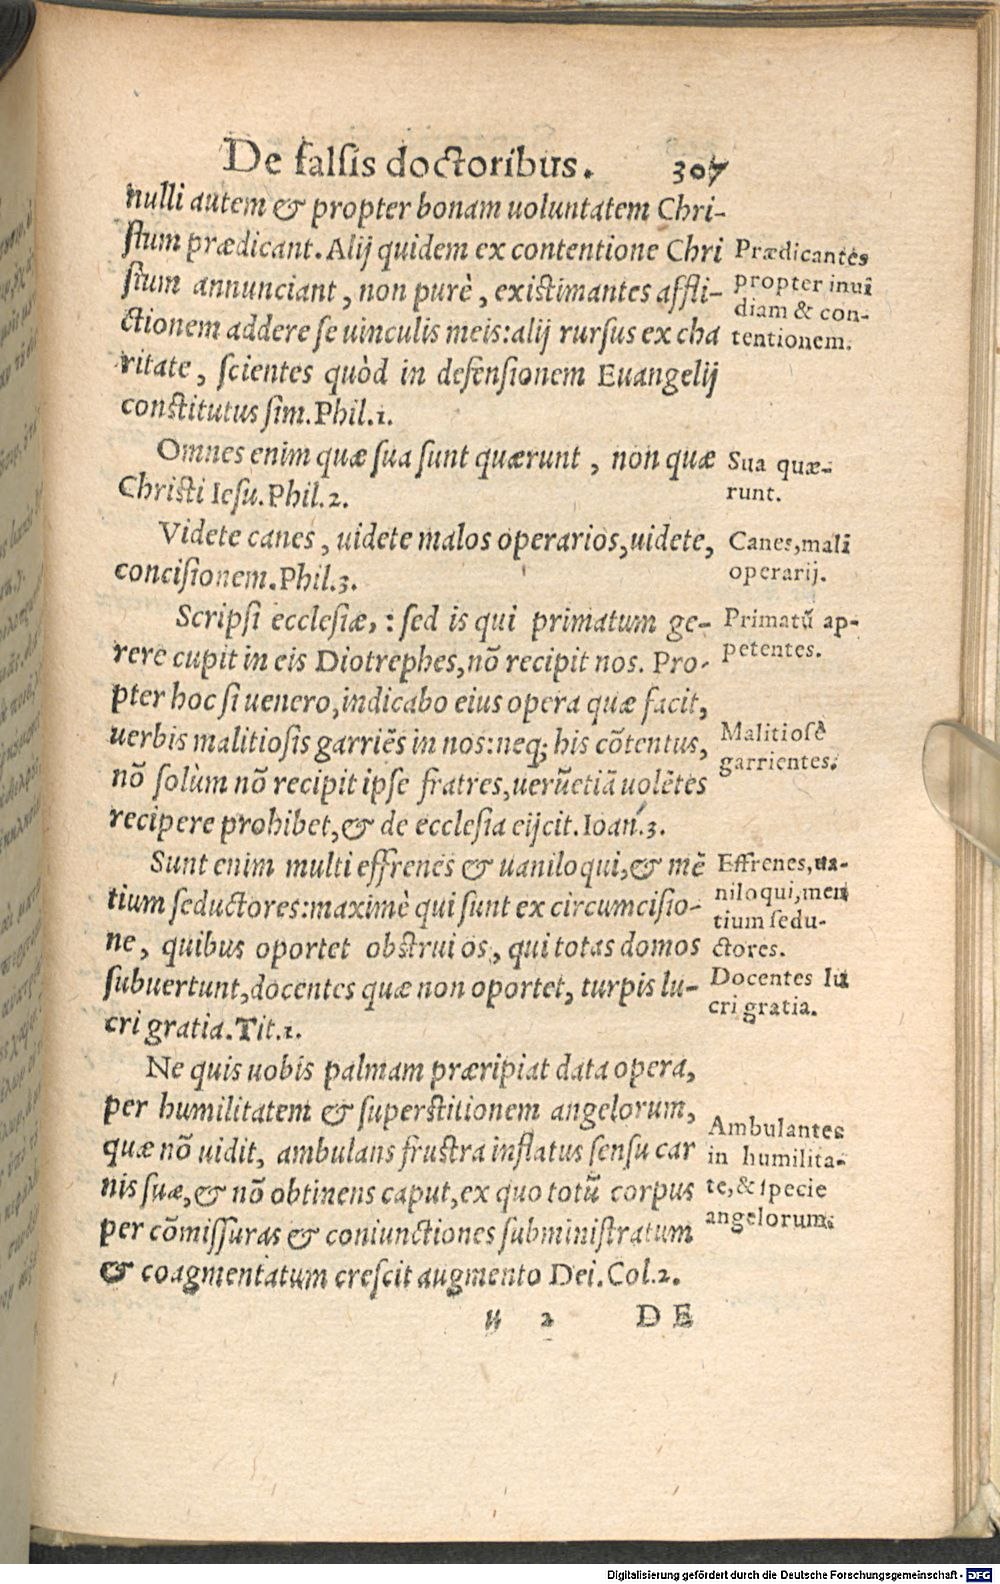 De falsis doctoribus. 307
nulli autem & propter bonam uoluntatem Chri-
stum prædicant. Alij quidem ex contentione Chri
stum annunciant, non purè, existimantes affli-
ctionem addere se uinculis meis: alij rursus ex cha
ritate, scientes quòd in defensionem Euangelij
constitutus sim. Phil.1.
Prædicantes
propter inui
diam & con-
tentionem.
Omnes enim quæ sua sunt quærunt, non quæ
Christi Iesu. Phil.2.
Sua quæ-
runt.
Videte canes, uidete malos operarios, uidete,
concisionem. Phil.3.
Canes, mali
operarij.
Scripsi ecclesiæ,: sed is qui primatum ge-
rere cupit in eis Diotrephes, nõ recipit nos. Pro-
pter hoc si uenero, indicabo eius opera quæ facit,
uerbis malitiosis garriẽs in nos: neq; his cõtentus,
nõ solùm nõ recipit ipse fratres, uerũetiã uolẽtes
recipere prohibet, & de ecclesia eijcit. Ioan.3.
Primatũ ap-
petentes.
Malitiosè
garrientes.
Sunt enim multi effrenes & uaniloqui, & mẽ
tium seductores: maximè qui sunt ex circumcisio-
ne, quibus oportet obstrui os, qui totas domos
subuertunt, docentes quæ non oportet, turpis lu-
cri gratia. Tit.1.
Effrenes, ua-
niloqui, men
tium sedu-
ctores.
Docentes lu
cri gratia.
Ne quis uobis palmam præripiat data opera,
per humilitatem & superstitionem angelorum,
quæ nõ uidit, ambulans frustra inflatus sensu car
nis suæ, & nõ obtinens caput, ex quo totũ corpus
per cõmissuras & coniunctiones subministratum
& coagmentatum crescit augmento Dei. Col.2.
Ambulantes
in humilita-
te, & specie
angelorum.
u 2 DE
Digitalisierung gefördert durch die Deutsche Forschungsgemeinschaft - DFG